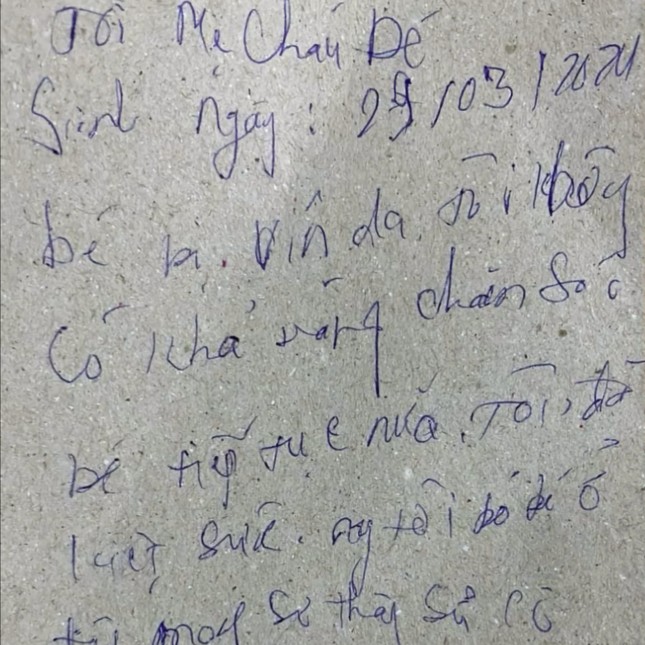 Tôi Mẹ Cháu Bé
Sinh ngày: 29/03/2021
bé bị. viên da. tôi không
Có khả năng chăm Sóc
bé tiếp tục nữa. Tôi, đã
kiệt sức. nay tôi bỏ bé ở
mong Sư thầy Sư Cô